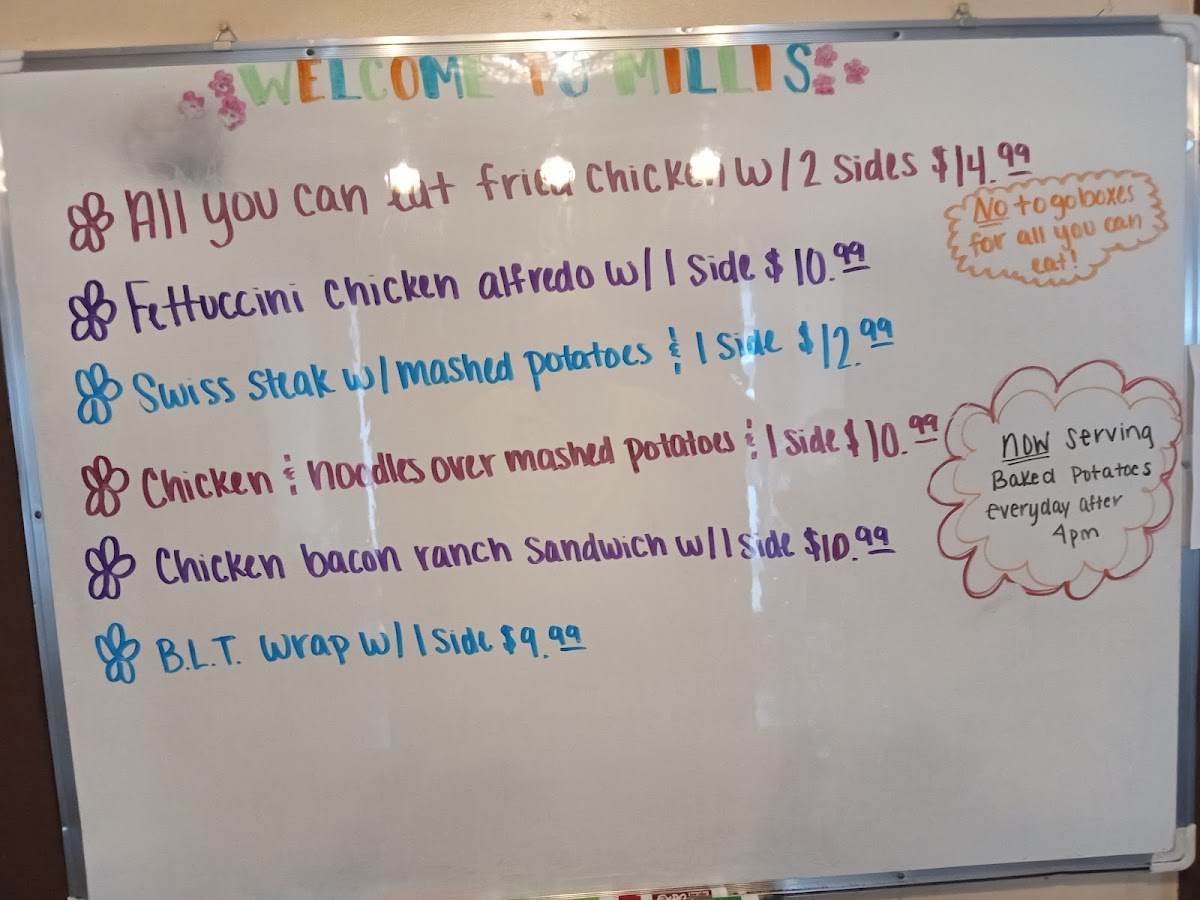 WELCOME TO MILLIS
All you can eat fried chicken w/2 sides $14.99
No to go boxes
for all you can
eat!
Fettuccini chicken alfredo w/1 side $10.99
Swiss steak w/mashed potatoes & 1 side $12.99
Chicken & noodles over mashed potatoes & 1 side $10.99
NOW serving
Baked Potatoes
everyday after
4pm
Chicken bacon ranch sandwich w/1 side $10.99
B.L.T. wrap w/1 side $9.99